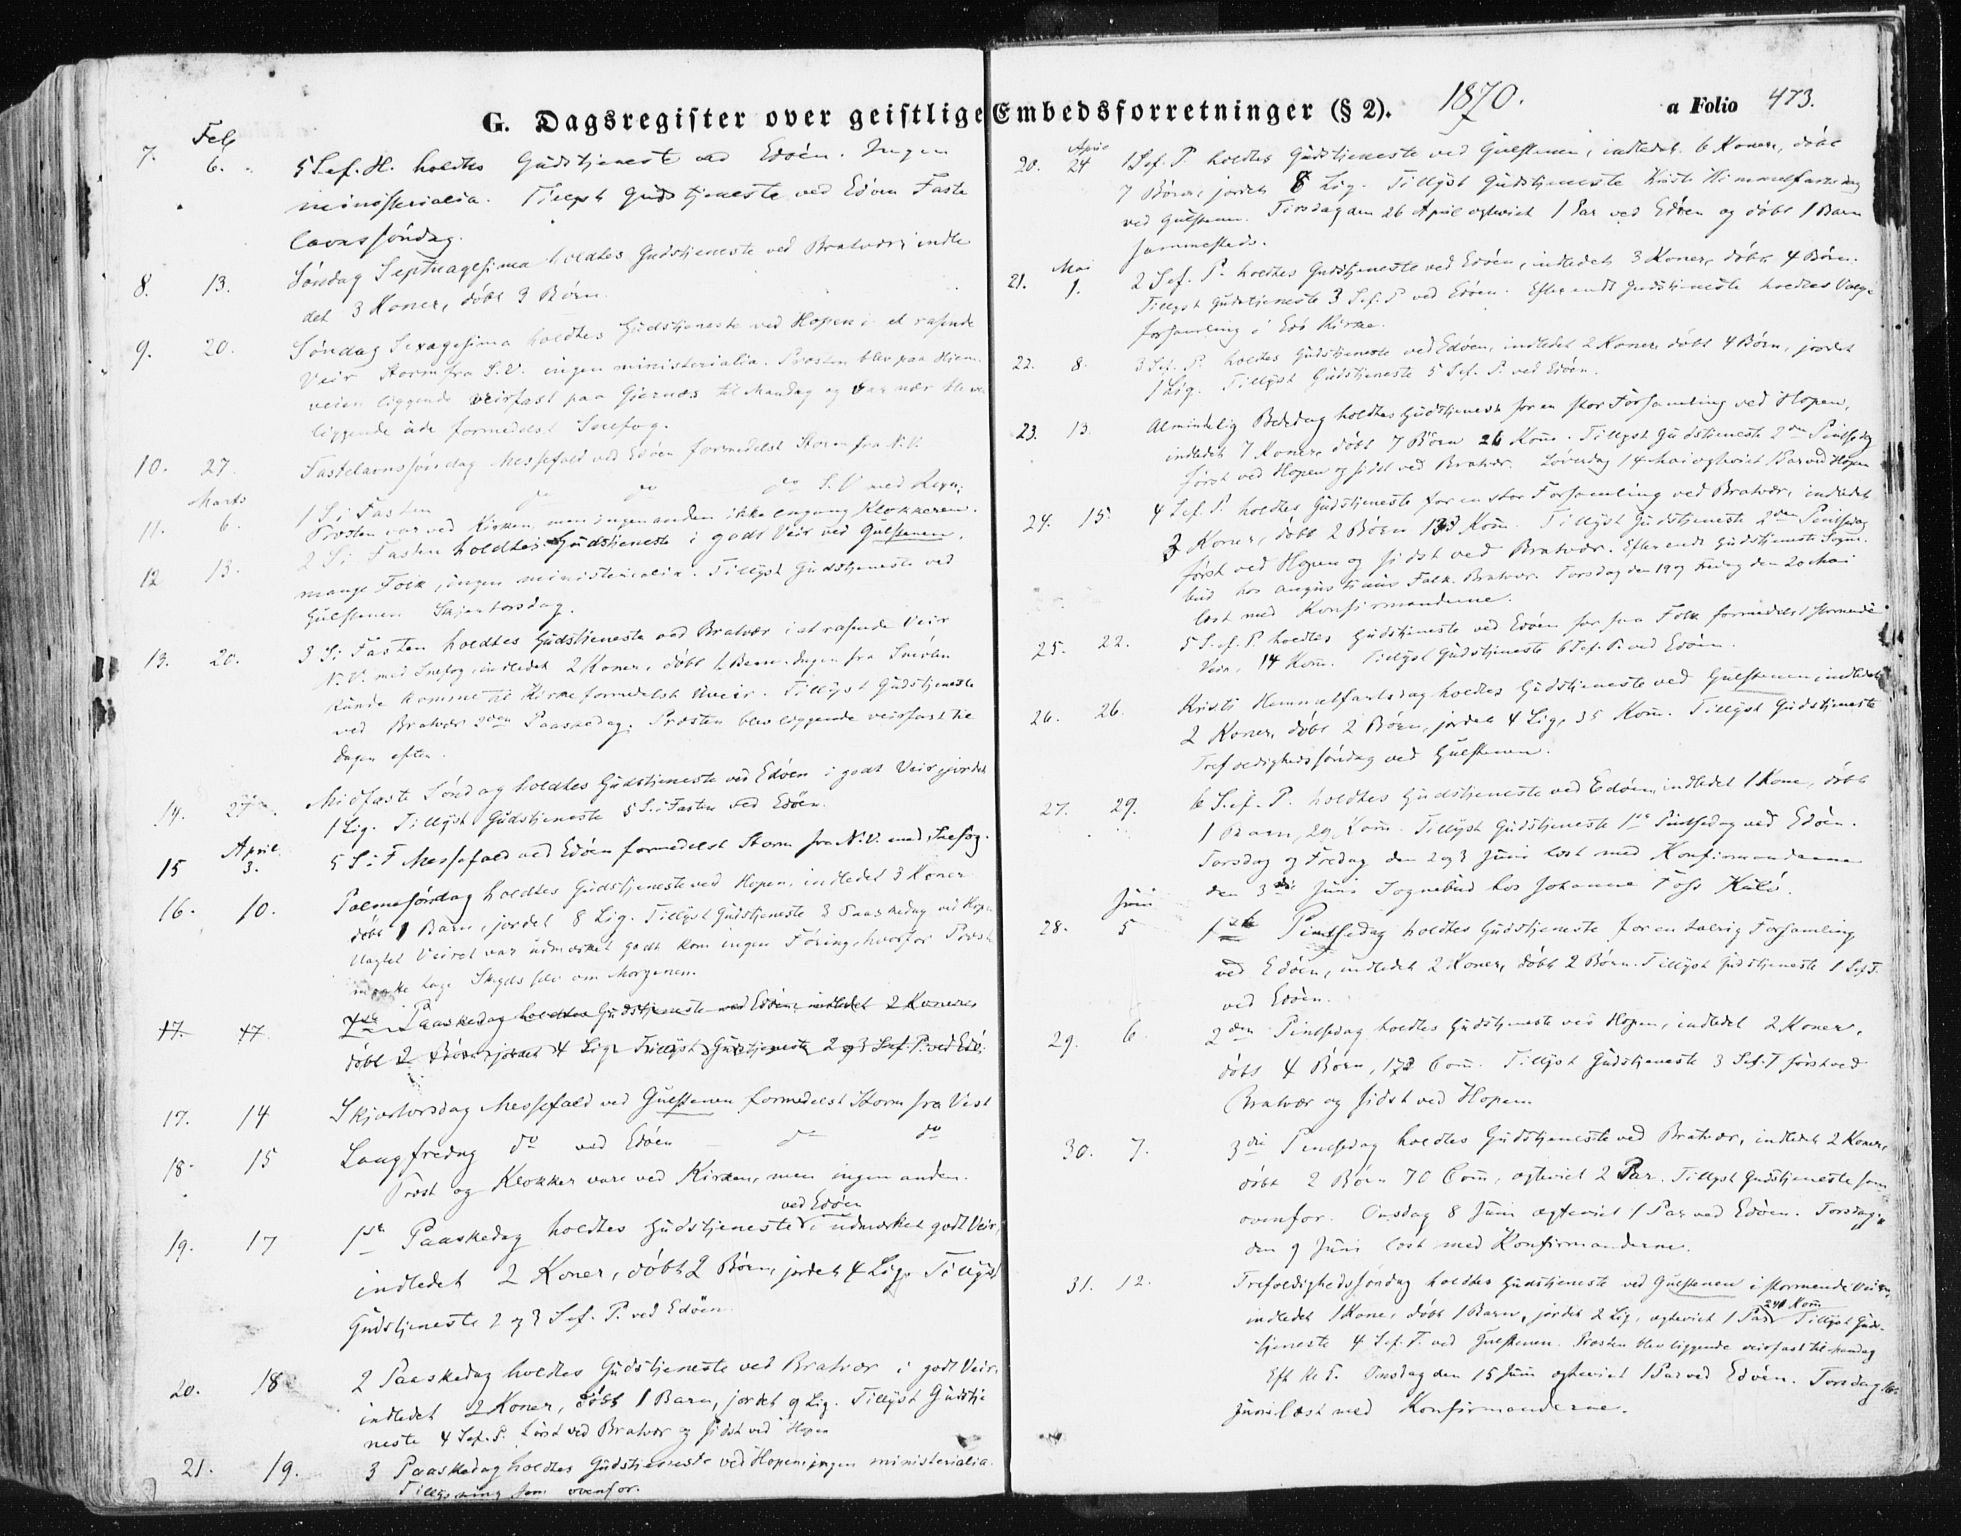 G. Dagsregister over geistlige Embedsforretninger (§ 2). 1870. a Folio 473.
Feb
7. 6. 5 S. ef. H. holdtes Gudstjeneste ved Edøen. Ingen
ministerialia. Tillyst Gudstjeneste ved Edøen Faste
lavnssøndag.
8. 13. Søndag Septuagesima holdtes Gudstjeneste ved Bratvær; indle
det 3 Koner, døbt 3 Børn.
9. 20. Søndag Sexagesima holdtes Gudstjeneste ved Hopen i et rasende
Veir Storm fra S.V. ingen ministerialia. Provsten blev paa Hiem
veien liggende veirfast paa Giernæs til Mandag og var nær
liggende ude formedelst Snefog.
10. 27. Fastelavnssøndag Messefald ved Edøen formedelst Storm fra N.V.
Marts
11. 6. 1 S. i Fasten do do do S.V med Regn;
Provsten var ved Kirken, men ingen anden ikke engang Klokkeren.
12 13. 2 S. i Fasten holdtes Gudstjeneste i godt Veir ved Gulstenen,
mange Folk, ingen ministerialia. Tillyst Gudstjeneste ved
Gulstenen Skjærtorsdag.
13. 20. 3 S. i Fasten holdtes Gudstjeneste ved Bratvær i et rasende Veir
N.V. med Snefog, indledet 2 Koner, døbt 1 Barn. Ingen fra Smølen
kunde komme til Kirke formedelst Uveir. Tillyst Gudstjeneste
ved Bratvær 2den Paaskedag. Provsten blev liggende veirfast til
Dagen efter.
14. 27. Midfaste Søndag holdtes Gudstjeneste ved Edøen i godt Veir, jordet
1 Lig. Tillyst Gudstjeneste 5 S. i Fasten ved Edøen.
April
15 3. 5 S. i F Messefald ved Edøen formedelst Storm fra N.V. med Snefog.
16. 10. Palmesøndag holdtes Gudstjeneste ved Hopen, indledet 3 Koner
døbt 1 Barn, jordet 8 Lig. Tillyst Gudstjeneste 3 Paaskedag ved Hopen
Uagtet Veiret var udmærket godt kom ingen Føring, hvorfor Provst
maatte tage Skyds selv om Morgenen.
17. 17. 1ste Paaskedag holdtes Gudstjeneste ved Edøen, indledet 2 Koner
døbt 2 Børn, jordet 4 Lig. Tillyst Gudstjeneste 2 og 3 S. ef. P. ved Edø.
17. 14 Skjærtorsdag Messefald ved Gulstenen formedelst Storm fra Vest
18. 15 Langfredag do ved Edøen do do
Provst og Klokker vare ved Kirken, men ingen anden.
ved Edøen
19. 17 1ste Paaskedag holdtes Gudstjeneste i udmærket godt Veir,
indledet 2 Koner, døbt 2 Børn, jordet 4 Lig. Tillyst
Gudstjeneste 2 og 3 S. ef. P. ved Edøen.
20. 18 2 Paaskedag holdtes Gudstjeneste ved Bratvær i godt Veir,
indledet 2 Koner, døbt 1 Barn, jordet 9 Lig. Tillyst Gudstje
neste 4 S. ef. P. først ved Bratvær og sidst ved Hopen
21. 19. 3 Paaskedag holdtes Gudstjeneste ved Hopen, ingen ministerialia.
Tillysning som ovenfor.
April
20. 24 1 S. ef. P holdtes Gudstjeneste ved Gulstenen, indledet 6 Koner, døbt
7 Børn, jordet 8 Lig. Tillyst Gudstjeneste Kristi Himmelfartsdag
ved Gulstenen. Tirsdagen 26 April egteviet 1 Par ved Edøen og døbt 1 Barn
sammesteds.
Mai
21. 1. 2 S. ef. P. holdtes Gudstjeneste ved Edøen, indledet 3 Koner, døbt 4 Børn.
Tillyst Gudstjeneste 3 S. ef. P ved Edøen. Efter endt Gudstjeneste holdtes Valg-
forsamling i Edø Kirke.
22. 8. 3 S. ef. P. holdtes Gudstjeneste ved Edøen, indledet 2 Koner, døbt 4 Børn, jordet
1 Lig. Tillyst Gudstjeneste 5 S. ef. P. ved Edøen.
23. 13. Almindelig Bededag holdtes Gudstjeneste for en stor Forsamling ved Hopen,
indledet 7 Koner, døbt 7 Børn 26 Kom. Tillyst Gudstjeneste 2den Pintsedag
først ved Hopen og sidst ved Bratvær. Løverdag 14 Mai egteviet 1 Par ved Hopen
24. 15. 4 S. ef. P. holdtes Gudstjeneste for en stor Forsamling ved Bratvær, indledet
3 Koner, døbt 2 Børn Kom. Tillyst Gudstjeneste 2den Pintsedag
først ved Hopen og sidst ved Bratvær. Efter endt Gudstjeneste Sogne-
bud hos Falk. Bratvær. Torsdag den 19 og Fredag den 20 Mai
læst med Konfirmanderne.
25. 22. 5 S. ef. P. holdtes Gudstjeneste ved Edøen for faa Folk formedelst stormende
Veir, 14 Kom. Tillyst Gudstjeneste 6 S. ef. P. ved Edøen.
26. 26. Kristi Hemmelfartsdag holdtes Gudstjeneste ved Gulstenen, indledet
2 Koner, døbt 2 Børn, jordet 4 Lig, 35 Kom. Tillyst Gudstjeneste
Trefoldighedssøndag ved Gulstenen.
27. 29. 6 S. ef. P. holdtes Gudstjeneste ved Edøen, indledet 1 Kone, døbt
1 Barn, 29 Kom. Tillyst Gudstjeneste 1ste Pintsedag ved Edøen.
Torsdag og Fredag den 2 og 3 Juni læst med Konfirmanderne
den 3die Juni Sognebud hos Johanne Foss Kulø.
Juni
28. 5 1ste Pintsedag holdtes Gudstjeneste for en talrig Forsamling
ved Edøen, indledet 2 Koner, døbt 2 Børn. Tillyst Gudstjeneste 1 S. ef T.
ved Edøen.
29. 6. 2den Pintsedag holdtes Gudstjeneste ved Hopen, indledet 2 Koner,
døbt 4 Børn, 173 Com. Tillyst Gudstjeneste 3 S. ef. T først ved
Bratvær og sidst ved Hopen.
30. 7. 3die Pintsedag holdtes Gudstjeneste ved Bratvær, indledet 2 Koner,
døbt 2 Børn 70 Com, egteviet 2 Par. Tillyst Gudstjeneste som
ovenfor. Onsdag 8 Juni egteviet 1 Par ved Edøen. Torsdag
den 9 Juni læst med Konfirmanderne.
31. 12. Trefoldighedssøndag holdtes Gudstjeneste ved Gulstenen i stormende Veir,
indledet 1 Kone, døbt 1 Barn, jordet 2 Lig, egteviet 1 Par 241 Kom Tillyst Guds-
tjeneste 4 S. ef. T. ved Gulstenen. Provsten blev liggende veirfast til Mandag
Eft Kl 5. Onsdag den 15 Juni egteviet 1 Par ved Edøen. Torsdag 16
Juni læst med Konfirmanderne.